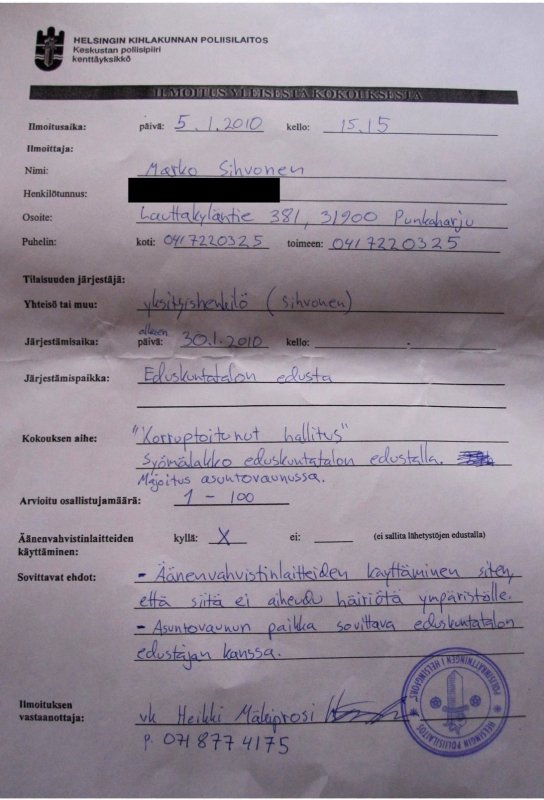 HELSINGIN KIHLAKUNNAN POLIISILAITOS
Keskustan poliisipiiri
kenttäyksikkö
ILMOITUS YLEISESTÄ KOKOUKSESTA
Ilmoitusaika: päivä: 5.1.2010 kello: 15.15
Ilmoittaja:
Nimi: Marko Sihvonen
Henkilötunnus:
Osoite: Lauttakyläntie 381, 31900 Punkaharju
Puhelin: koti: 0417220325 toimeen: 0417220325
Tilaisuuden järjestäjä:
Yhteisö tai muu: yksityishenkilö (Sihvonen)
alkaen
Järjestämisaika: päivä: 30.1.2010 kello: -
Järjestämispaikka: Eduskuntatalon edusta
Kokouksen aihe: "Korruptoitunut hallitus"
Syömälakko eduskuntatalon edustalla.
Majoitus asuntovaunussa.
Arvioitu osallistujamäärä: 1 - 100
Äänenvahvistinlaitteiden kyllä: X ei: (ei sallita lähetystöjen edustalla)
käyttäminen:
Sovittavat ehdot: - Äänenvahvistinlaitteiden käyttäminen siten,
että siitä ei aiheudu häiriötä ympäristölle.
- Asuntovaunun paikka sovittava eduskuntatalon
edustajan kanssa.
Ilmoituksen
vastaanottaja: vk Heikki Mäkiprosi
p. 071 877 4175
POLISINRÄTTNINGEN I HELSINGFORS
HELSINGIN POLIISILAITOS